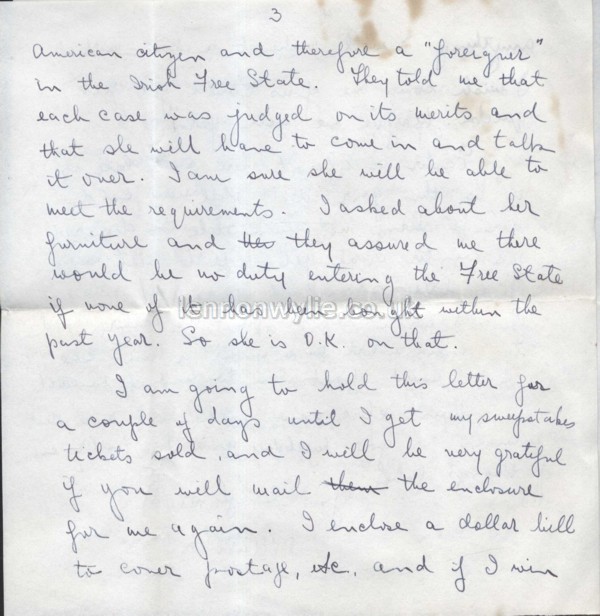 3
American citizen and therefore a "foreigner"
in the Irish Free State. They told me that
each case was judged on its merits and
that she will have to come in and talk
it over. I am sure she will be able to
meet the requirements. I asked about her
furniture and they assured me there
would be no duty entering the Free State
if none of it has been bought within the
lennonwylie.co.uk
past year. So she is O.K. on that.
I am going to hold this letter for
a couple of days until I get my sweepstakes
tickets sold, and I will be very grateful
if you will mail them the enclosure
for me again. I enclose a dollar bill
to cover postage, etc, and if I win